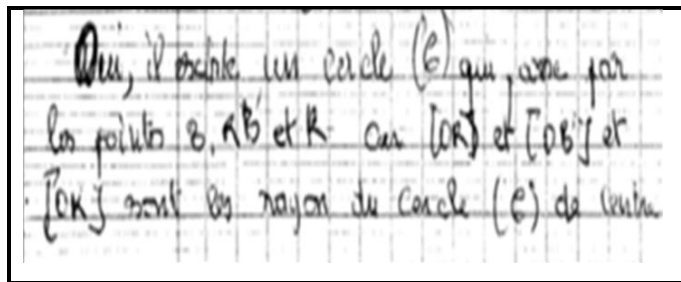 Oui, il existe un cercle (C) qui passe par
les points B, et K car [OR] et [OB'] et
[OK] sont les rayon du cercle (C) de centre